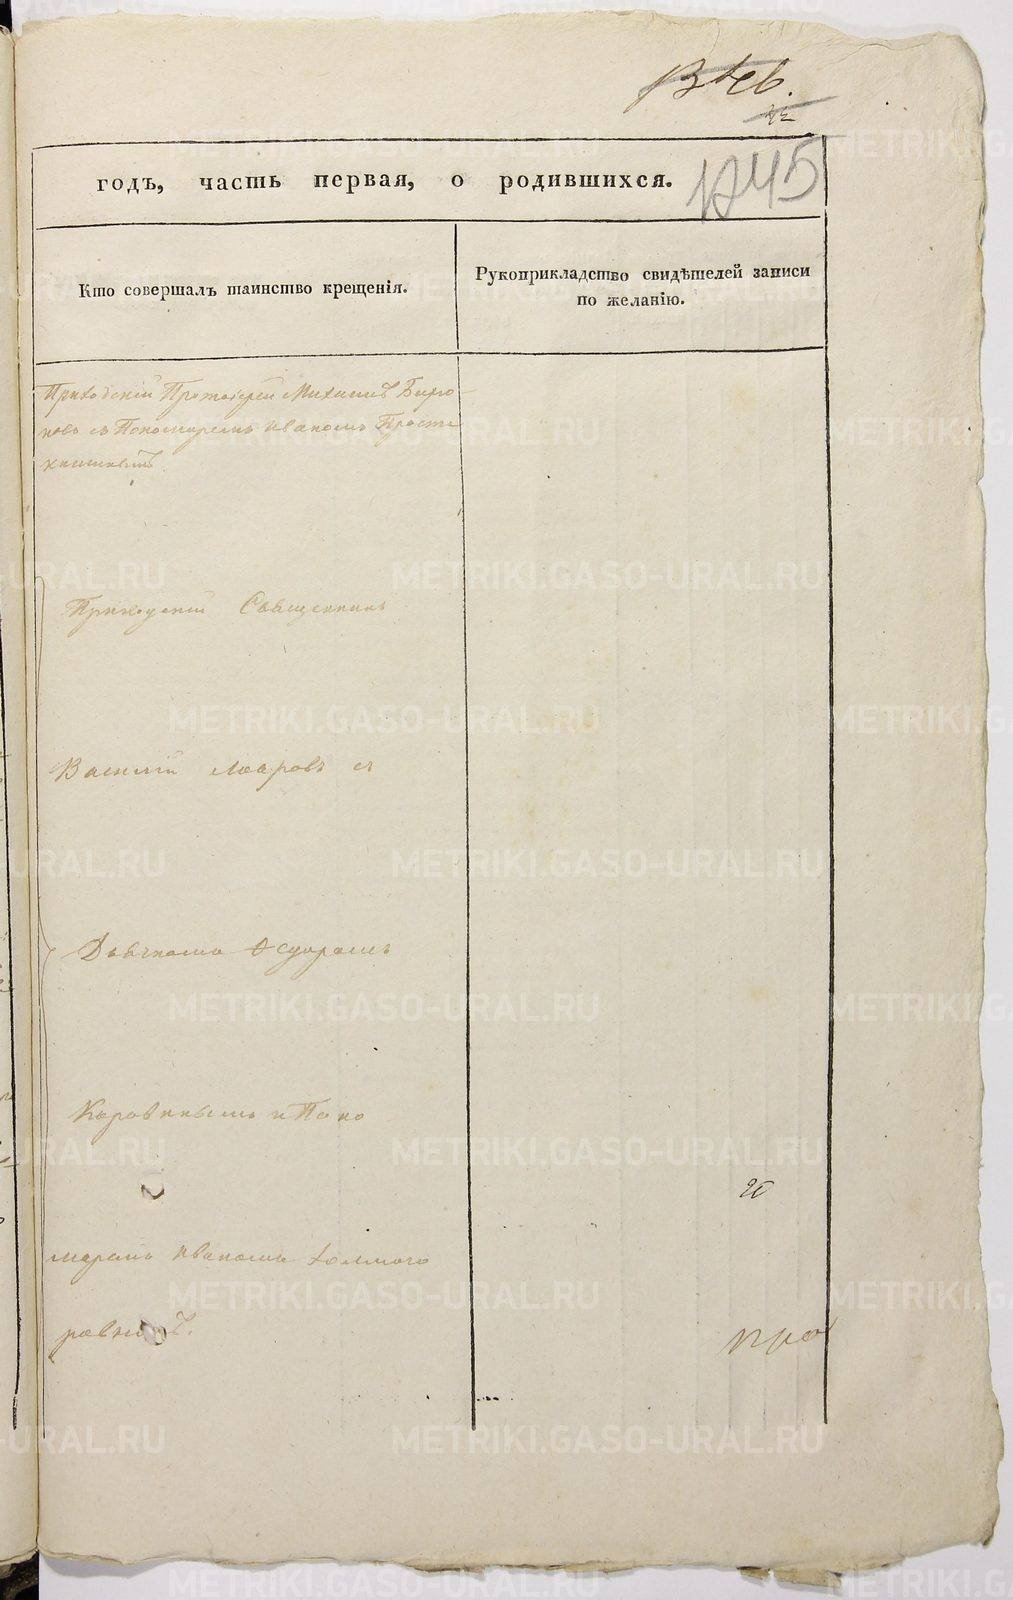 1245
годъ, часть первая, о родившихся.
Кто совершалъ таинство крещенія.
Рукоприкладство свидѣтелей записи
по желанію.
Приходскій Протоіерей Михаилъ Бирю-
ковъ съ Пономаремъ Иваномъ
Приходскій Священникъ
Василій Лавровъ съ
Дьячкомъ Ѳедоромъ
Коровинымъ и Поно
маремъ Иваномъ Холмого
ровымъ.
METRIKI.GASO-URAL.RU